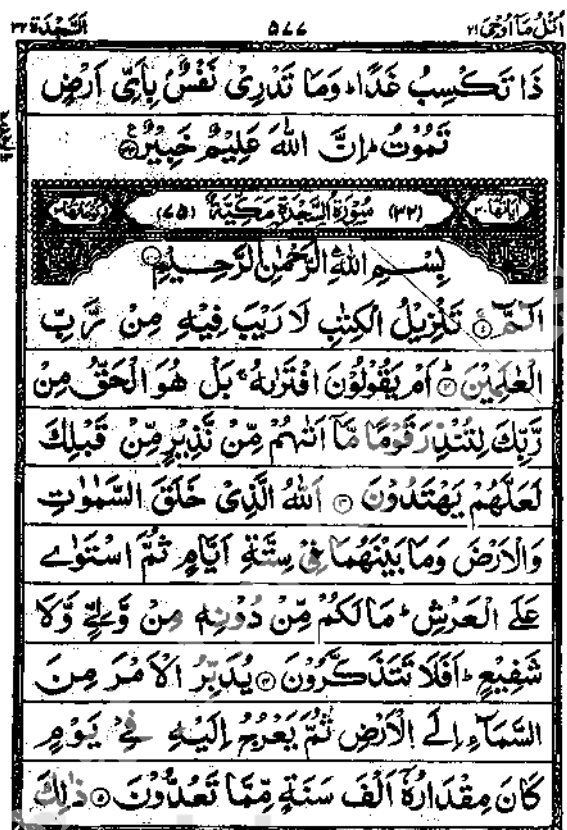 اُتْلُ مَآ اُوْحِيَ ٢١ ٥٧٧ اَلسَّجْدَة ٣٢
ذَا تَكْسِبُ غَدًا ؕ وَمَا تَدْرِىْ نَفْسٌۢ بِاَىِّ اَرْضٍ
تَمُوْتُ ؕ اِنَّ اللّٰهَ عَلِيْمٌ خَبِيْرٌ ﴿٣٤﴾
اٰيَاتُهَا ٣٠ (٣٢) سُوْرَةُ السَّجْدَةِ مَكِّيَّةٌ (٧٥) رُكُوْعَاتُهَا ٣
بِسْمِ اللّٰهِ الرَّحْمٰنِ الرَّحِيْمِ
الٓمّٓ ۚ﴿١﴾ تَنْزِيْلُ الْكِتٰبِ لَا رَيْبَ فِيْهِ مِنْ رَّبِّ
الْعٰلَمِيْنَ ؕ﴿٢﴾ اَمْ يَقُوْلُوْنَ افْتَرٰىهُ ۚ بَلْ هُوَ الْحَقُّ مِنْ
رَّبِّكَ لِتُنْذِرَ قَوْمًا مَّاۤ اَتٰىهُمْ مِّنْ نَّذِيْرٍ مِّنْ قَبْلِكَ
لَعَلَّهُمْ يَهْتَدُوْنَ ﴿٣﴾ اَللّٰهُ الَّذِىْ خَلَقَ السَّمٰوٰتِ
وَالْاَرْضَ وَمَا بَيْنَهُمَا فِىْ سِتَّةِ اَيَّامٍ ثُمَّ اسْتَوٰى
عَلَى الْعَرْشِ ؕ مَا لَكُمْ مِّنْ دُوْنِهٖ مِنْ وَّلِىٍّ وَّلَا
شَفِيْعٍ ؕ اَفَلَا تَتَذَكَّرُوْنَ ﴿٤﴾ يُدَبِّرُ الْاَمْرَ مِنَ
السَّمَآءِ اِلَى الْاَرْضِ ثُمَّ يَعْرُجُ اِلَيْهِ فِىْ يَوْمٍ
كَانَ مِقْدَارُهٗۤ اَلْفَ سَنَةٍ مِّمَّا تَعُدُّوْنَ ﴿٥﴾ ذٰلِكَ